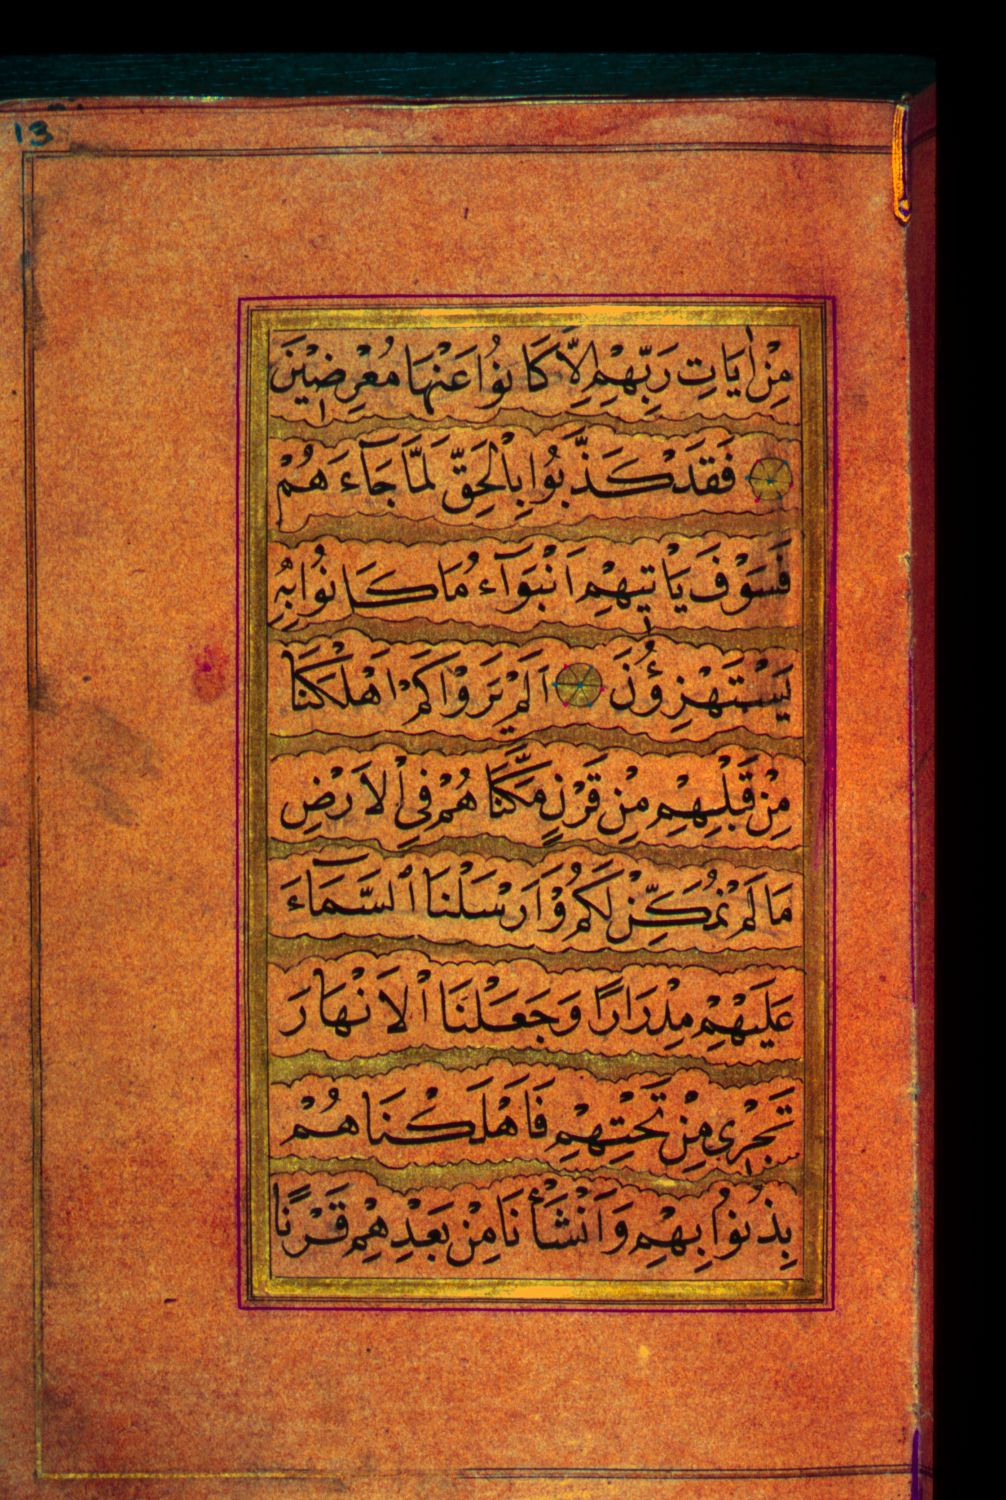 13
مِنْ اٰيَاتِ رَبِّهِمْ اِلَّا كَانُوا عَنْهَا مُعْرِضِيْنَ
فَقَدْ كَذَّبُوا بِالْحَقِّ لَمَّا جَآءَهُمْ
فَسَوْفَ يَاْتِيهِمْ اَنْبٰٓوءُ مَا كَانُوا بِهٖ
يَسْتَهْزِؤُنَ اَلَمْ يَرَوْا كَمْ اَهْلَكْنَا
مِنْ قَبْلِهِمْ مِنْ قَرْنٍ مَكَّنَّاهُمْ فِي الْاَرْضِ
مَا لَمْ نُمَكِّنْ لَكُمْ وَاَرْسَلْنَا السَّمَآءَ
عَلَيْهِمْ مِدْرَارًا وَجَعَلْنَا الْاَنْهَارَ
تَجْرِى مِنْ تَحْتِهِمْ فَاَهْلَكْنَاهُمْ
بِذُنُوبِهِمْ وَاَنْشَأْنَا مِنْ بَعْدِهِمْ قَرْنًا